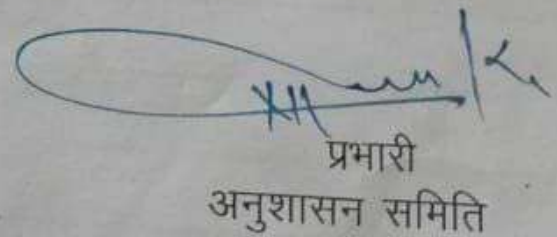 प्रभारी
अनुशासन समिति